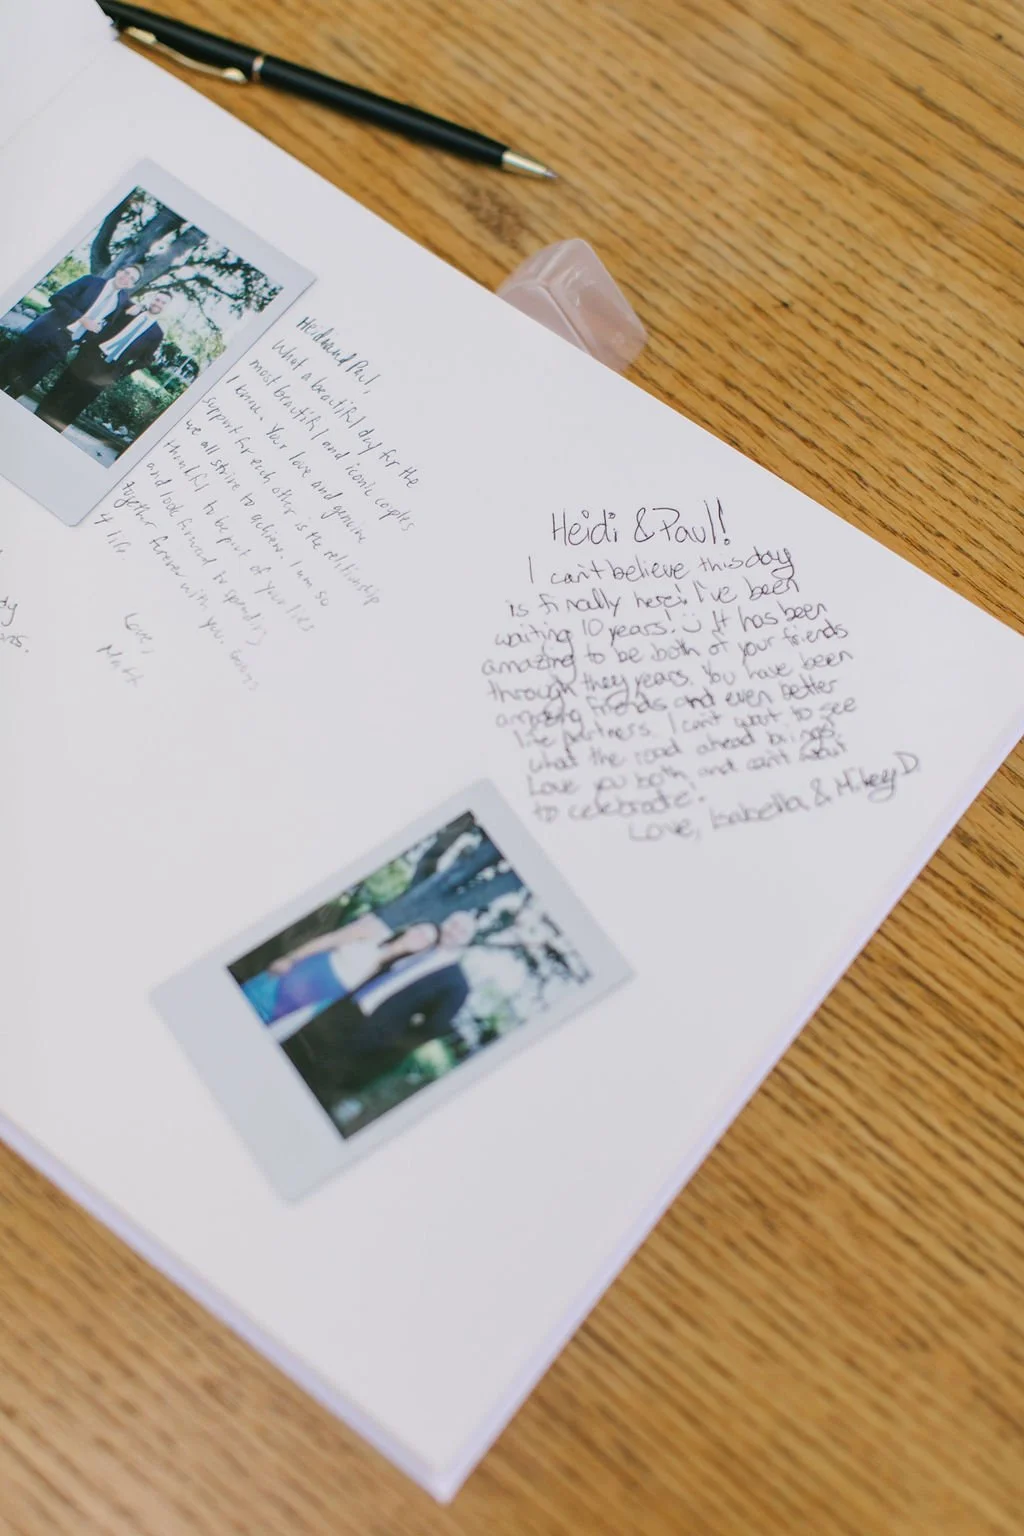 Heidi and Paul,
What a beautiful day for the
most beautiful and iconic couples
I know. Your love and genuine
support for each other is the relationship
we all strive to achieve. I am so
thankful to be part of your lives
and look forward to spending
together forever with you.
4 life.
Love,
Heidi & Paul!
I can't believe this day
is finally here! I've been
waiting 10 years! :) It has been
amazing to be both of your friends
through they years. You have been
amazing friends and even better
life partners. I can't wait to see
what the road ahead brings!
Love you both and can't wait
to celebrate!
Love, Isabella & Mikey D.